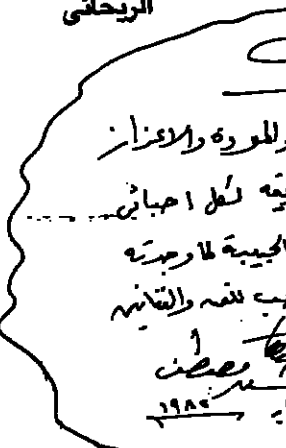 الريحاني
والمودة والاعزاز
لكل احبائى
الحبيبة لما وجدته
للفن والتفانى
مصطفى
١٩٨٢